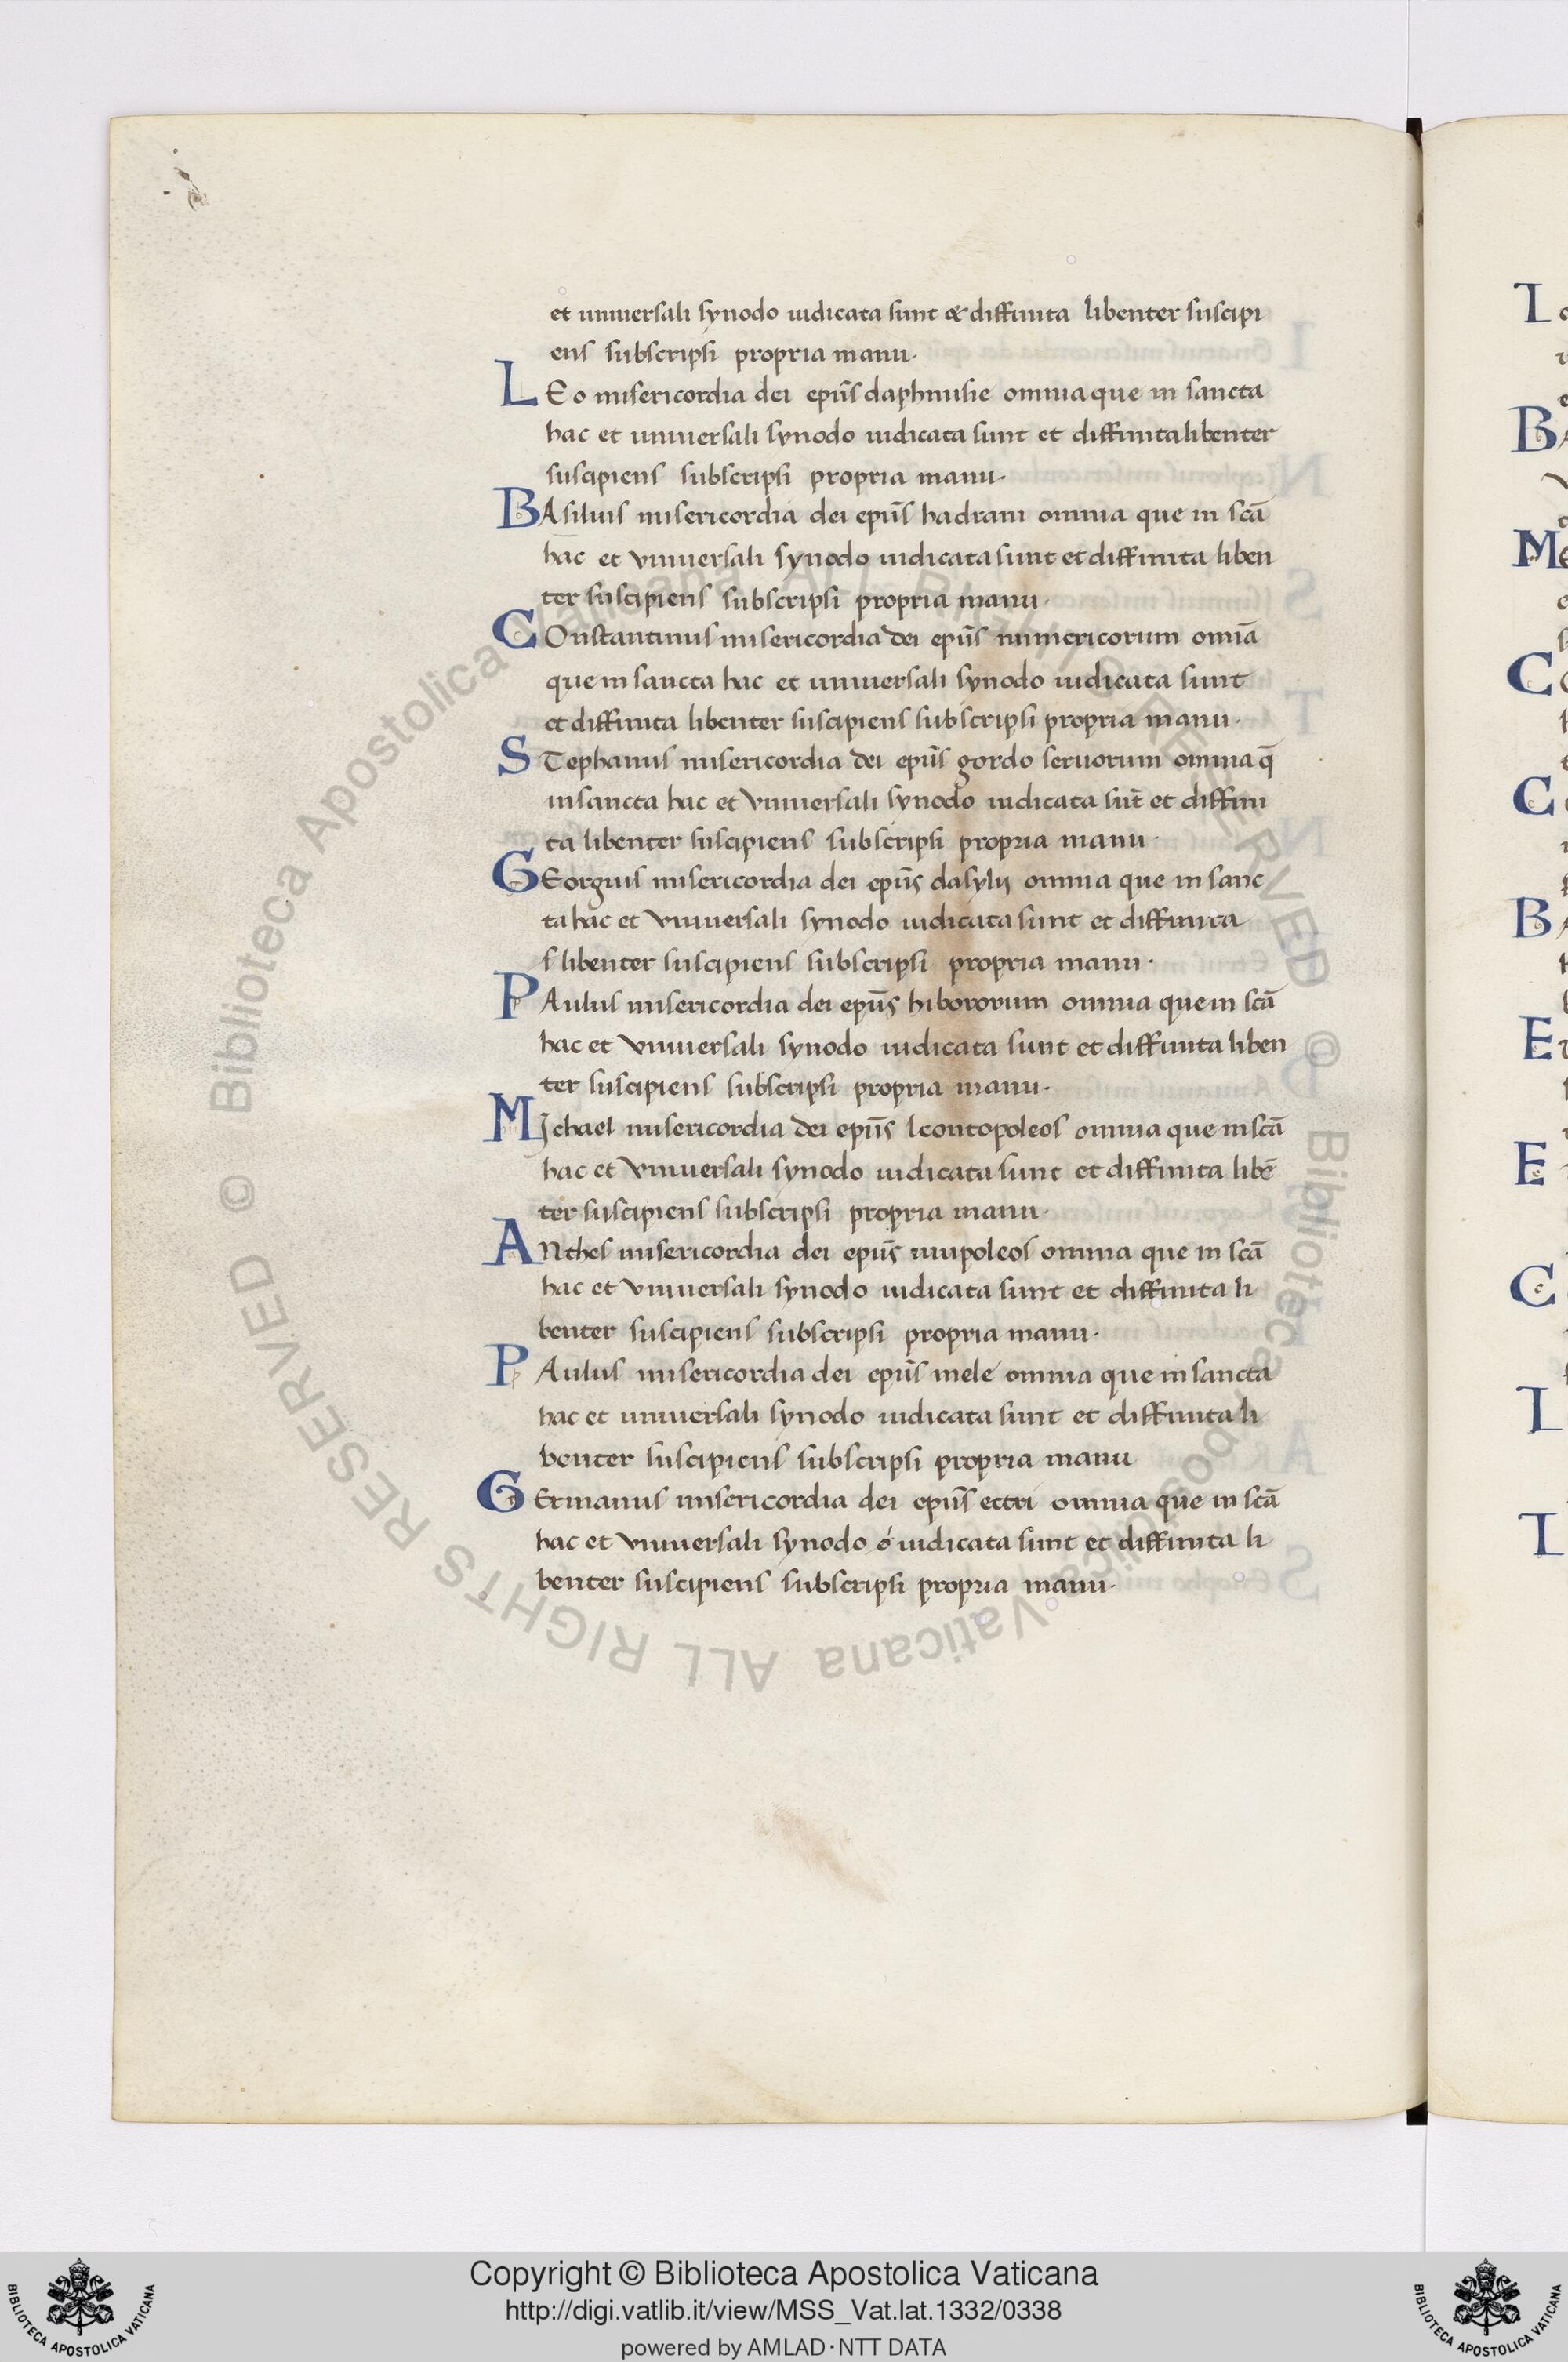 et uniuersali synodo iudicata sunt & diffinita libenter suscipi
ens subscripsi propria manu.
LEo misericordia dei ep̄us daphnusie omnia que in sancta
hac et uniuersali synodo iudicata sunt et diffinita libenter
suscipiens subscripsi propria manu.
BAsilius misericordia dei ep̄us hadrani omnia que in sc̄a
hac et vniuersali synodo iudicata sunt et diffinita liben
ter suscipiens subscripsi propria manu.
COnstantinus misericordia dei ep̄us numericorum omīa
que in sancta hac et uniuersali synodo iudicata sunt
et diffinita libenter suscipiens subscripsi propria manu.
STephanus misericordia dei ep̄us gordo seruorum omnia q̄
in sancta hac et vniuersali synodo iudicata sūt et diffini
ta libenter suscipiens subscripsi propria manu.
GEorgius misericordia dei ep̄us dasylij omnia que in sanc
ta hac et vniuersali synodo iudicata sunt et diffinita
s libenter suscipiens subscripsi propria manu.
PAulus misericordia dei ep̄us hibororum omnia que in sc̄a
hac et vniuersali synodo iudicata sunt et diffinita liben
ter suscipiens subscripsi propria manu.
MIchael misericordia dei ep̄us leontopoleos omnia que in sc̄a
hac et vniuersali synodo iudicata sunt et diffinita libē
ter suscipiens subscripsi propria manu.
ANthes misericordia dei ep̄us omnia que in sc̄a
hac et vniuersali synodo iudicata sunt et diffinita li
benter suscipiens subscripsi propria manu.
PAulus misericordia dei ep̄us mele omnia que in sancta
hac et uniuersali synodo iudicata sunt et diffinita li
benter suscipiens subscripsi propria manu
GErmanus misericordia dei ep̄us ectri omnia que in sc̄a
hac et vniuersali synodo iudicata sunt et diffinita li
benter suscipiens subscripsi propria manu.
L
BA
Me
C
C
B
E
E
C
L
I
© Biblioteca Apostolica Vaticana ALL RIGHTS RESERVED
© Biblioteca Apostolica Vaticana ALL RIGHTS RESERVED
Copyright © Biblioteca Apostolica Vaticana
http://digi.vatlib.it/view/MSS_Vat.lat.1332/0338
powered by AMLAD·NTT DATA
BIBLIOTECA APOSTOLICA VATICANA
BIBLIOTECA APOSTOLICA VATICANA